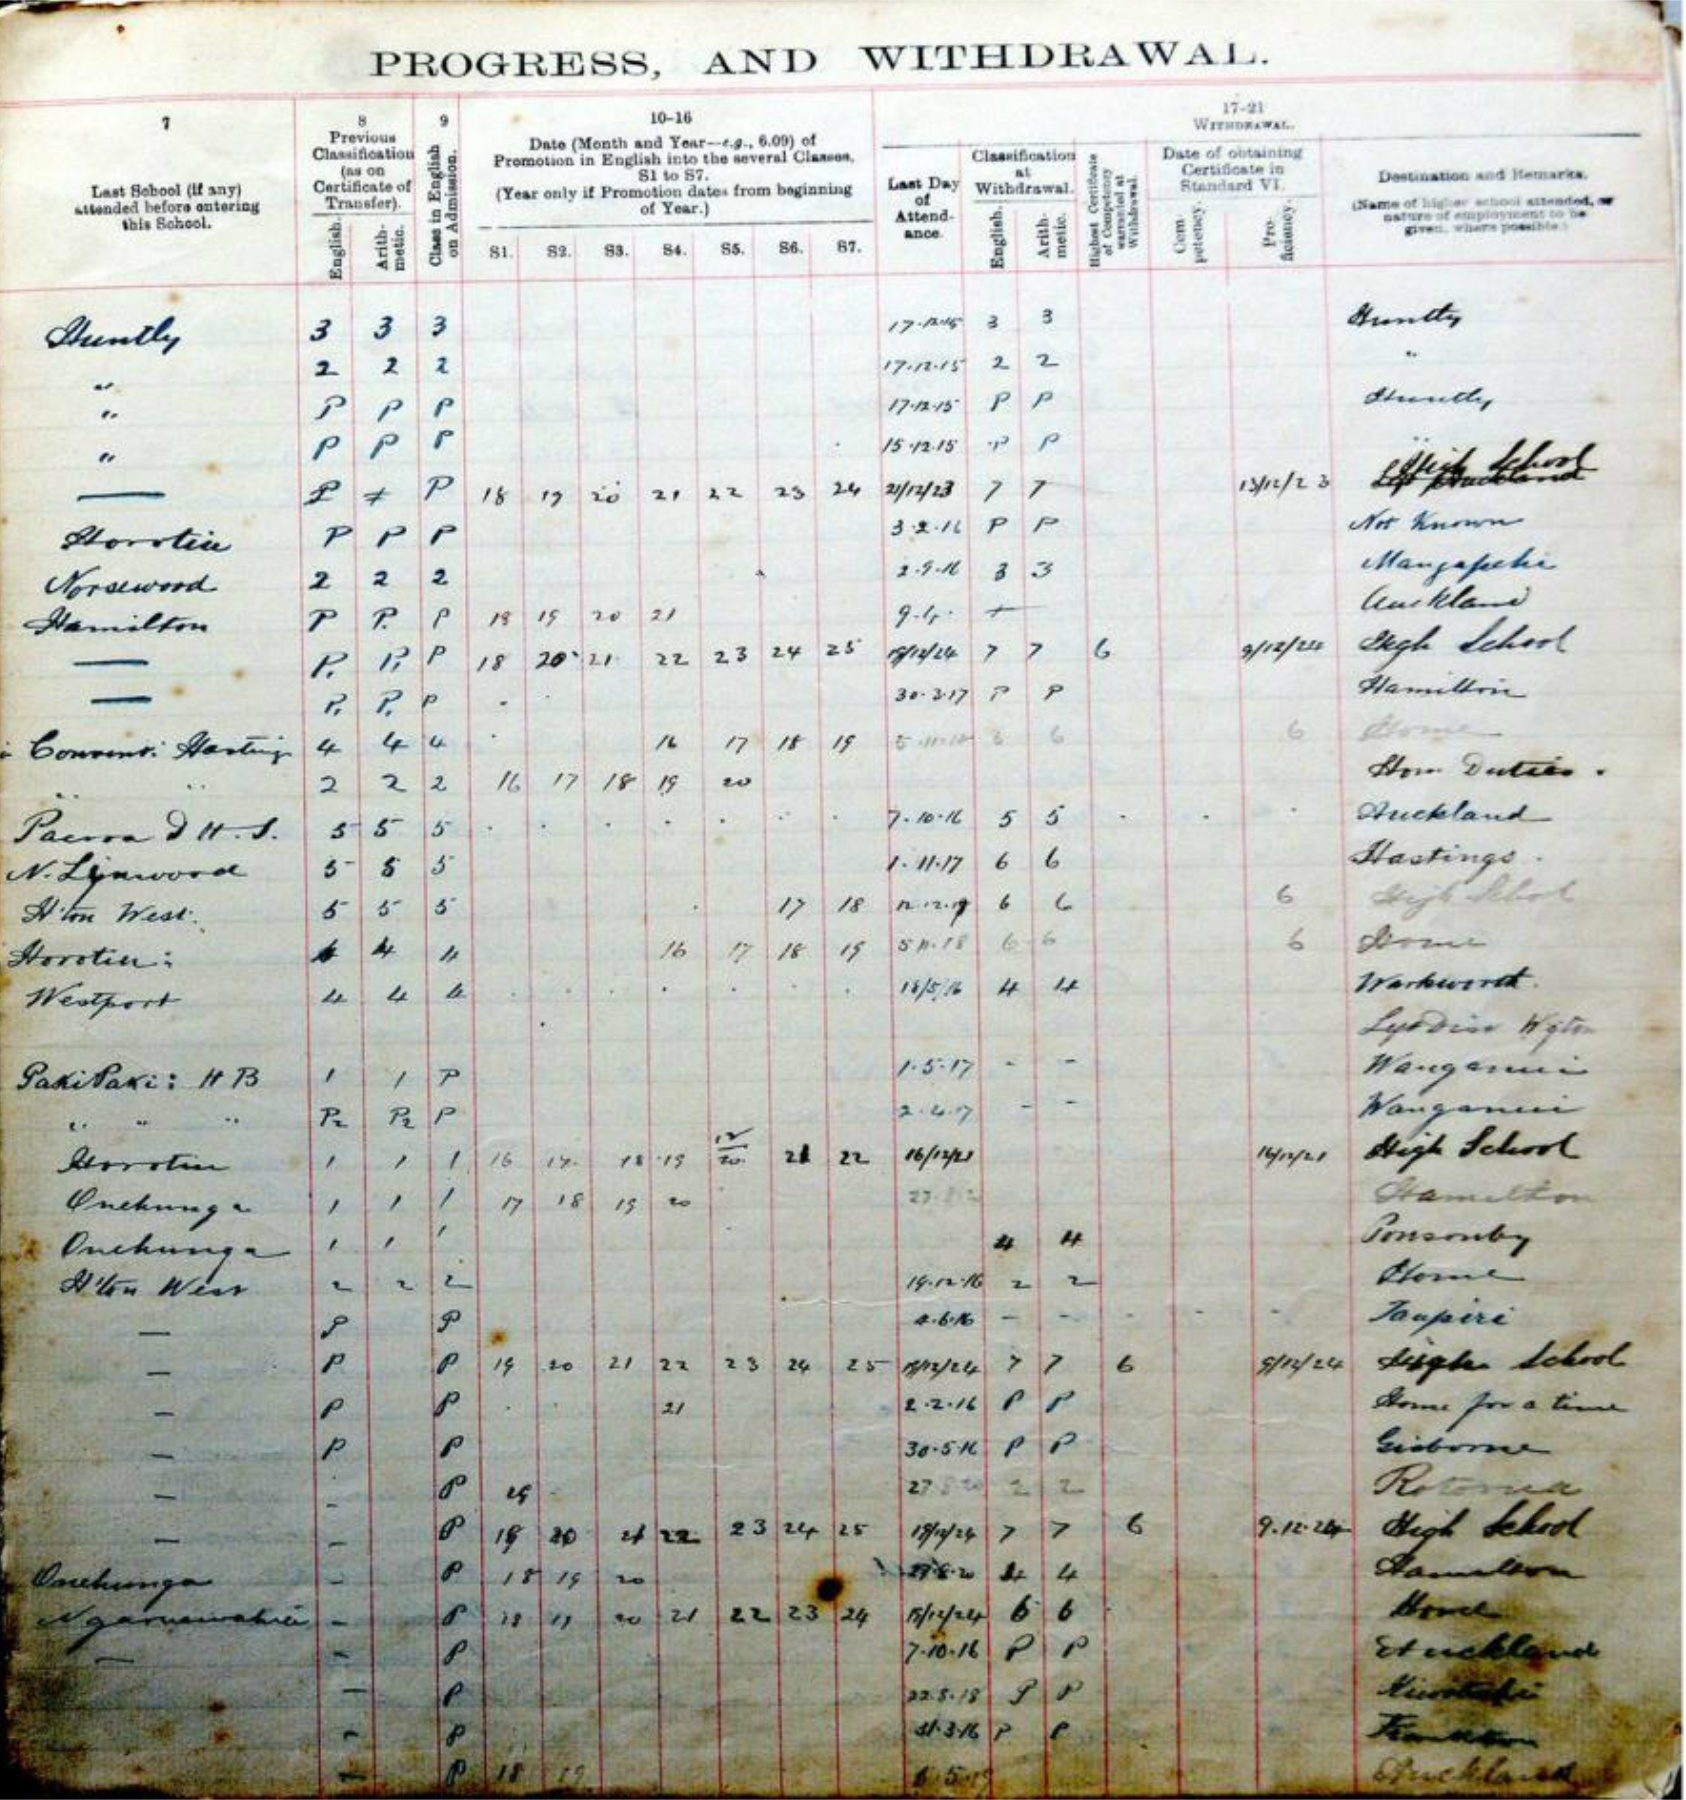 PROGRESS, AND WITHDRAWAL.
7 8 9 10-16 17-21
Last School (if any) attended before entering this School.
Previous Classification (as on Certificate of Transfer).
English. Arithmetic.
Class in English on Admission.
Date (Month and Year—e.g., 6.09) of Promotion in English into the several Classes, S1 to S7.
(Year only if Promotion dates from beginning of Year.)
S1. S2. S3. S4. S5. S6. S7.
WITHDRAWAL.
Last Day of Attendance.
Classification at Withdrawal.
English. Arithmetic.
Highest Certificate of Competency warranted at Withdrawal.
Date of obtaining Certificate in Standard VI.
Competency. Proficiency.
Destination and Remarks.
(Name of higher school attended, or nature of employment to be given, where possible.)
Huntly 3 3 3 17.12.15 3 3 Huntly
" 2 2 2 17.12.15 2 2 "
" P P P 17.12.15 P P Huntly
" P P P 15.12.15 P P "
— P P 18 19 20 21 22 23 24 21/12/23 7 7 13/12/23 High School
Horotiu P P P 3.2.16 P P Not Known
Norsewood 2 2 2 2.9.16 3 3
Hamilton P P. P 18 19 20 21 Auckland
— P. P. P 18 20 21 22 23 24 25 18/12/24 7 7 6 9/12/24 High School
— P. P. P 30.3.17 P P Hamilton
Convent: Hastings 4 4 4 16 17 18 19 6 6 Home
" " 2 2 2 16 17 18 19 20 Home Duties.
Paeroa D H.S. 5 5 5 7.10.16 5 5 Auckland
N. Linwood 5 5 5 1.11.17 6 6 Hastings.
H'ton West. 5 5 5 17 18 6 6 6 High School
Horotiu: 4 4 16 17 18 19 5.11.18 6 6 6 Home
Westport 4 4 4 18/5/16 4 4 Warkworth.
Wgton
PakiPaki: H B 1 1 P 1.5.17 - - Wanganui
" " " P2 P2 P 2.4.17 - - Wanganui
Horotiu 1 1 1 16 17. 18 19 12/20 21 22 16/12/21 16/12/21 High School
Onehunga 1 1 1 17 18 19 20 Hamilton
Onehunga 1 1 1 4 4 Ponsonby
H'ton West 2 2 2 19.12.16 2 2 Home
— P P 4.6.16 - - - - - Taupiri
— P P 19 20 21 22 23 24 25 18/12/24 7 7 6 9/12/24 High School
— P P 21 2.2.16 P P Home for a time
— P P 30.5.16 P P Gisborne
— - P 2 2 Rotorua
— - P 19 20 21 22 23 24 25 18/12/24 7 7 6 9.12.24 High School
Onehunga - P 18 19 20 4 4 Hamilton
Ngaruawahia - P 18 19 20 21 22 23 24 18/12/24 6 6
— - P 7.10.16 P P Auckland
- P 22.8.18 P P
- P 31.3.16 P P Frankton
- P 18 19 Auckland